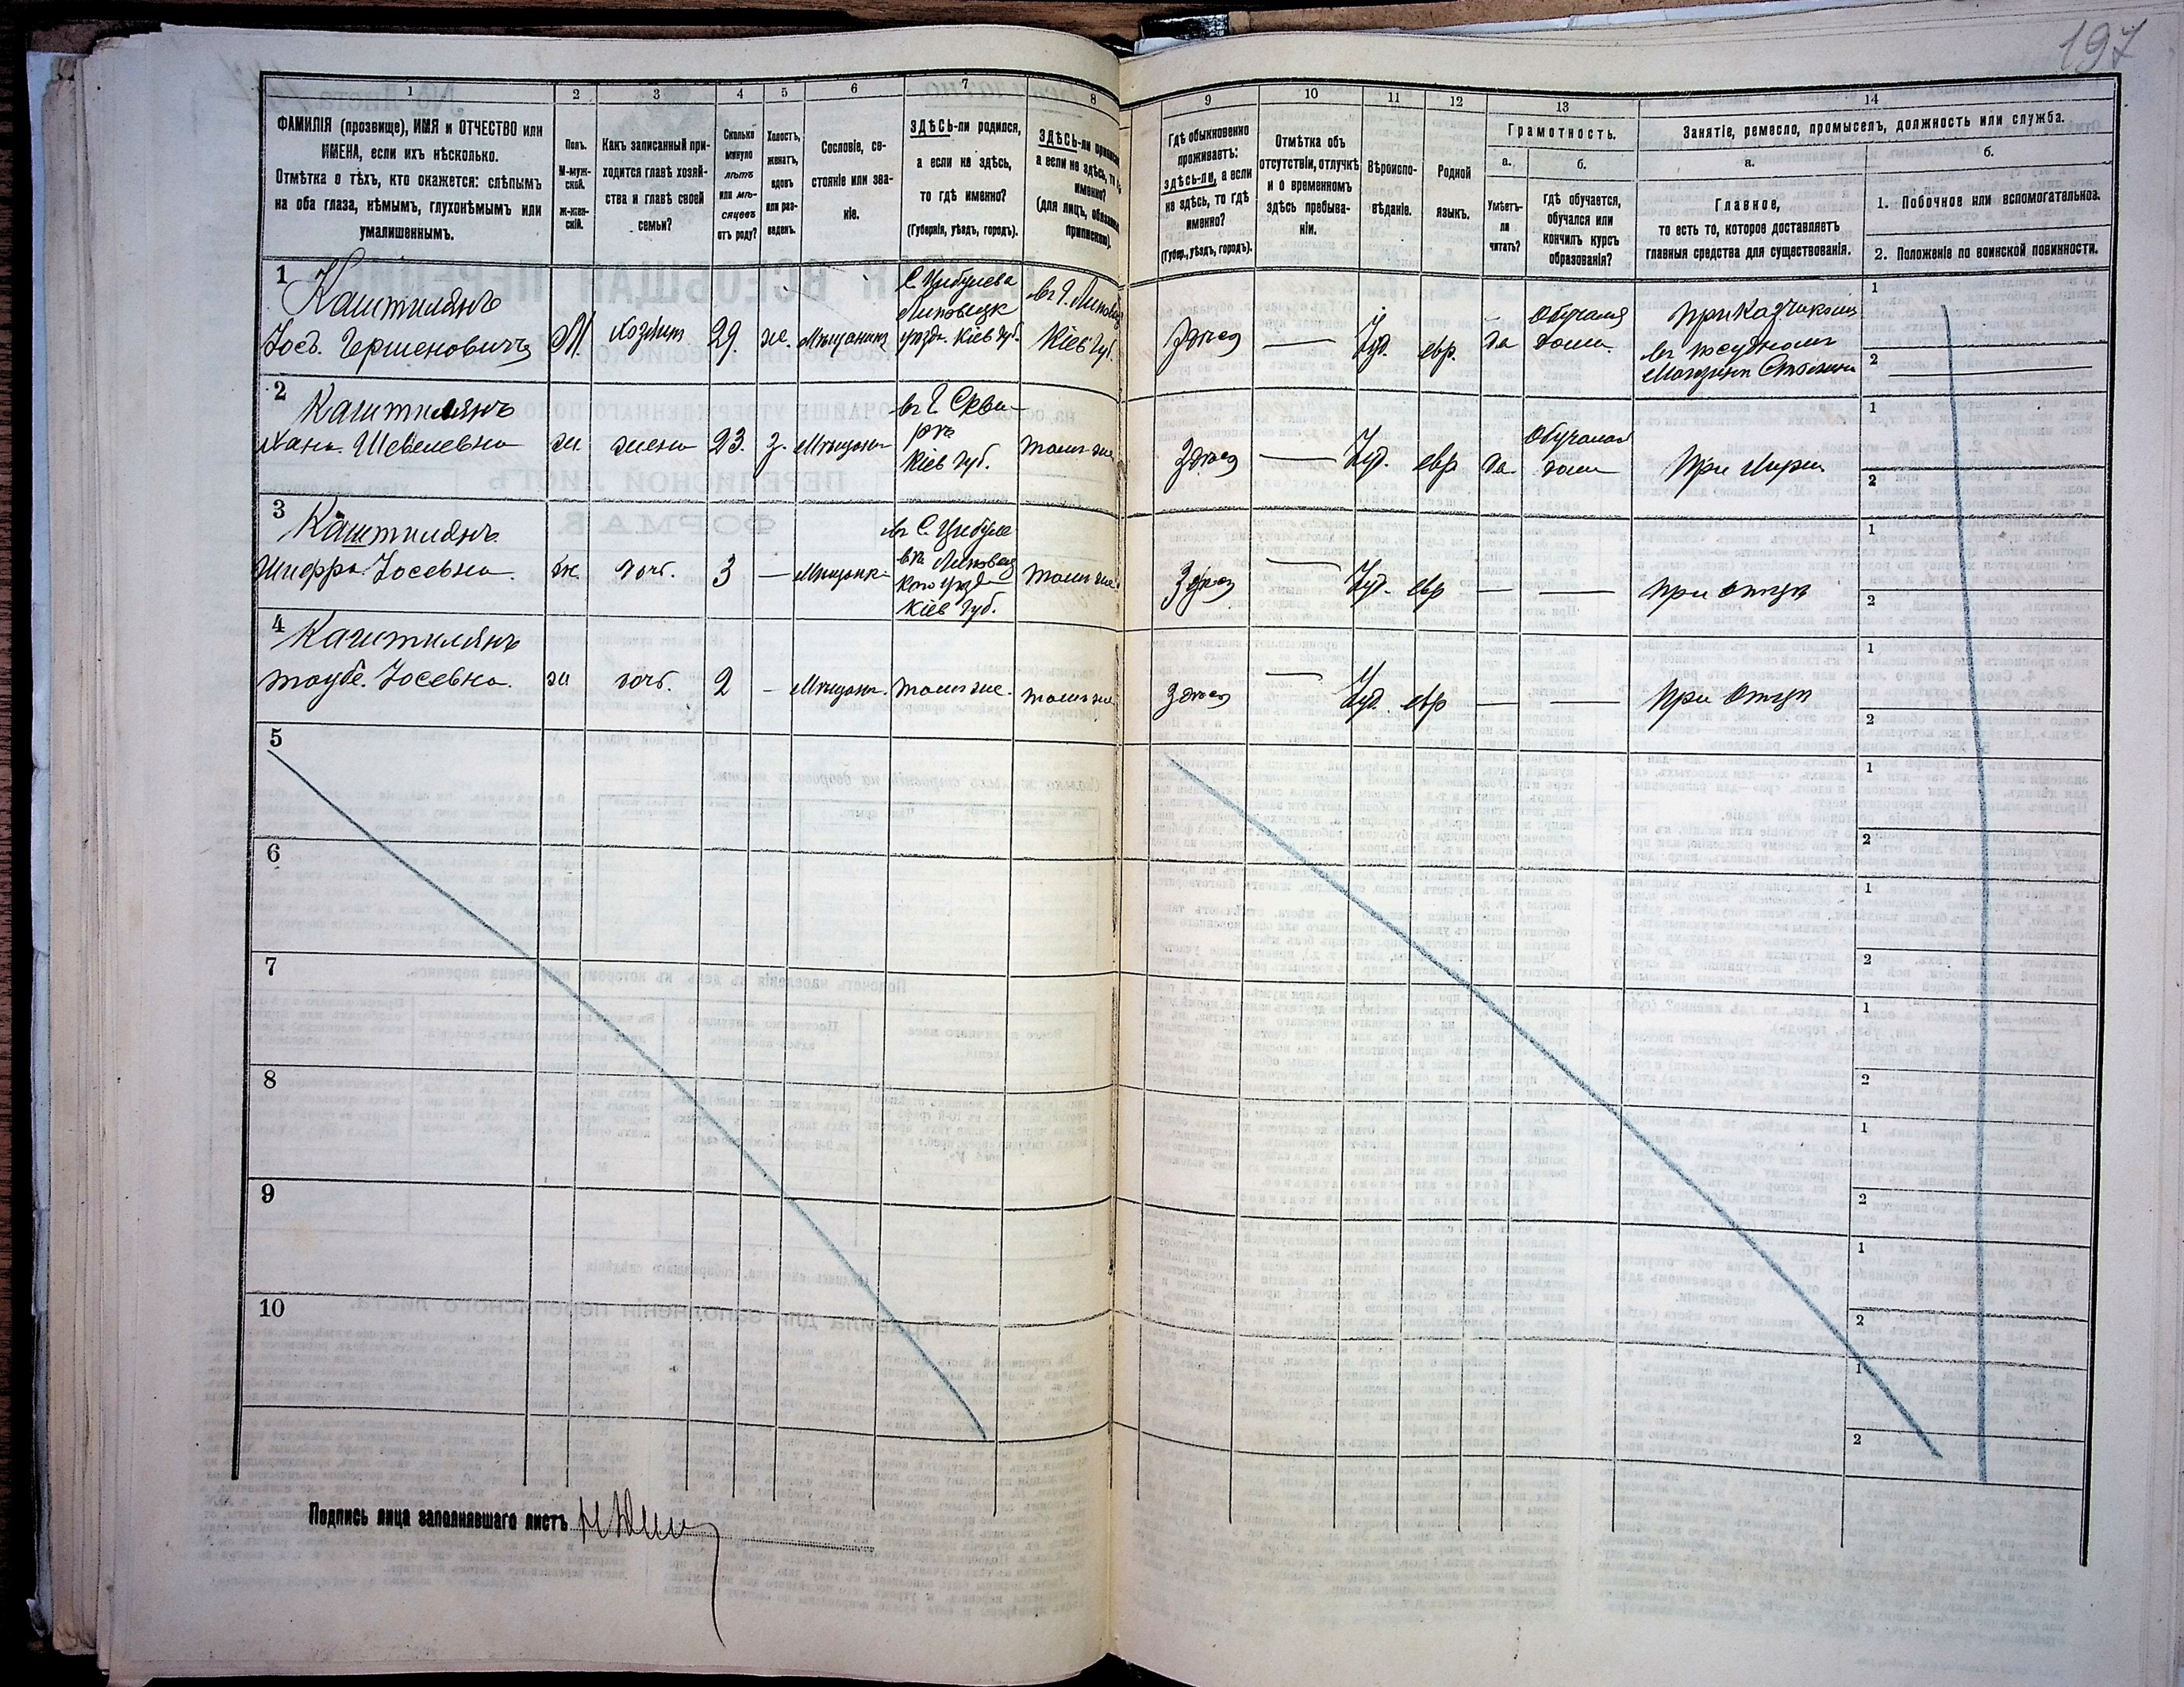 197
1
2
3
4
5
6
7
8
9
10
11
12
13
14
ФАМИЛІЯ (прозвище), ИМЯ и ОТЧЕСТВО или
ИМЕНА, если ихъ нѣсколько.
Отмѣтка о тѣхъ, кто окажется: слѣпымъ
на оба глаза, нѣмымъ, глухонѣмымъ или
умалишеннымъ.
Полъ.
М-муж-
ской.
Ж-жен-
скій.
Какъ записанный при-
ходится главѣ хозяй-
ства и главѣ своей
семьи?
Сколько
минуло
лѣтъ
или мѣ-
сяцевъ
отъ роду?
Холостъ,
женатъ,
вдовъ
или раз-
веденъ.
Сословіе, со-
стояніе или зва-
ніе.
ЗДѢСЬ-ли родился,
а если не здѣсь,
то гдѣ именно?
(Губернія, уѣздъ, городъ).
ЗДѢСЬ-ли
а если не здѣсь,
именно?
(для лицъ,
Гдѣ обыкновенно
проживаетъ:
здѣсь-ли, а если
не здѣсь, то гдѣ
именно?
(Губер., уѣздъ, городъ).
Отмѣтка объ
отсутствіи, отлучкѣ
и о временномъ
здѣсь пребыва-
ніи.
Вѣроиспо-
вѣданіе.
Родной
языкъ.
Грамотность.
а.
б.
Умѣетъ-
ли
читать?
Гдѣ обучается,
обучался или
кончилъ курсъ
образованія?
Занятіе, ремесло, промыселъ, должность или служба.
а.
б.
Главное,
то есть то, которое доставляетъ
главныя средства для существованія.
1. Побочное или вспомогательное.
2. Положеніе по воинской повинности.
1
Каштилянъ
Іос. Гершеновичъ
М.
Хозяин
29.
же.
Мѣщанинъ
С. Цибулева
Липовецк
уѣзда. Кіев Губ.
Въ г. Липовц
Кіев Губ.
Здѣсь
Іуд.
евр.
да
Обучался
дома.
Приказчикомъ
въ посудномъ
1
2
2
Каштилянъ
Хана. Шевелевна
ж.
жена
23.
з.
Мѣщанка
въ г. Скви-
рѣ
Кіев Губ.
тамъ же
Здѣсь
Іуд.
евр
да
Обучалась
дома
При мужѣ
1
2
3
Каштилянъ.
Шифра. Іосевна.
ж.
доч.
3
—
Мѣщанка
въ С. Цибуле
вѣ Липовец
каго уѣзд
Кіев Губ.
тамъ же.
Здѣсь
Іуд.
евр
—
—
при отцѣ
1
2
4
Каштилянъ
Таубе. Іосевна.
ж
доч.
2
-
Мѣщан.
тамъ же.
тамъ же
Здѣсь
Іуд.
евр
—
—
При отцѣ
1
2
5
1
2
6
1
2
7
1
2
8
1
2
9
1
2
10
1
2
Подпись лица заполнявшаго листъ